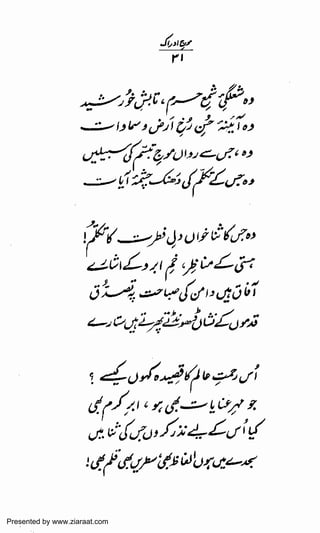 موجِ ادراک
۳۱
وہ شعلگئ شمعِ حرم، تابشِ خورشید
وہ آئینۂ حُسنِ رُخِ ارض و سماوات
وہ، جس سے رواں موجِ تبسّم کی سبیلیں
وہ جس کے تکلّم کی دَھنک چشمۂ آیات
وہ جس کا ثنا خواں دلِ فطرت کا تکلّم!
ہستی کے مناظر، خمِ ابرو کے اشارے
آفاق ہیں دامن کی صباحت پہ تصدّق
قدموں کے نشاں ڈھونڈتے پھرتے ہیں ستارے
اُس رحمتِ عالم کا قصیدہ کہوں کیسے؟
جو مہرِ عنایات بھی ہو، ابرِ کرم بھی
کیا اُس کے لیے نذر کروں جس کی ثنا میں
سجدے میں ہوں الفاظ بھی، سطریں بھی قلم بھی!
Presented by www.ziaraat.com